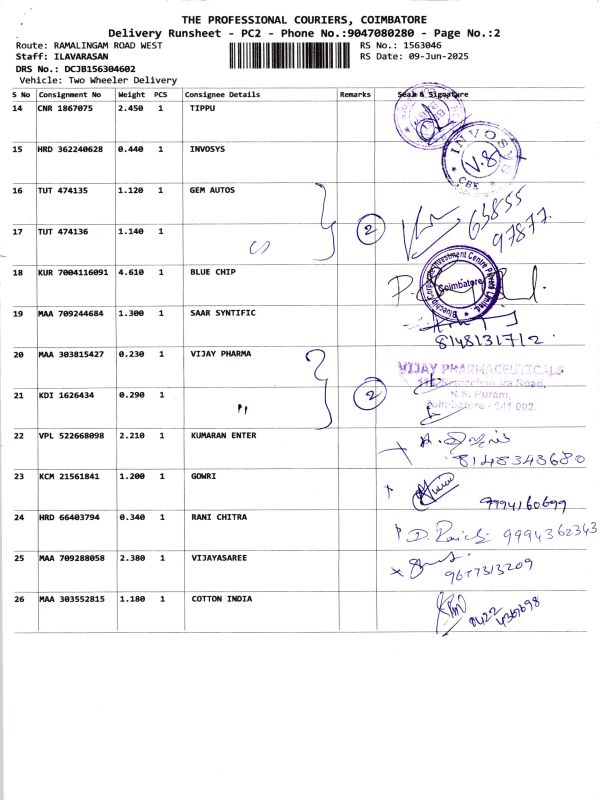 THE PROFESSIONAL COURIERS, COIMBATORE
Delivery Runsheet - PC2 - Phone No.:9047080280 - Page No.:2
Route: RAMALINGAM ROAD WEST
Staff: ILAVARASAN
DRS No.: DCJB156304602
Vehicle: Two Wheeler Delivery
RS No.: 1563046
RS Date: 09-Jun-2025
S No Consignment No Weight PCS Consignee Details Remarks Seal & Signature
14 CNR 1867075 2.450 1 TIPPU
15 HRD 362240628 0.440 1 INVOSYS
INVOSYS
V.8
CBE
16 TUT 474135 1.120 1 GEM AUTOS
63855
97877
17 TUT 474136 1.140 1 2
18 KUR 7004116091 4.610 1 BLUE CHIP
Bluechip Corporate Investment Centre Private Limited
Coimbatore
19 MAA 709244684 1.300 1 SAAR SYNTIFIC
8148131712
20 MAA 303815427 0.230 1 VIJAY PHARMA
VIJAY PHARMACEUTICALS
Road,
R.S. Puram,
Coimbatore - 641 002.
21 KDI 1626434 0.290 1 11 2
22 VPL 522668098 2.210 1 KUMARAN ENTER
8148343680
23 KCM 21561841 1.200 1 GOWRI
7994160699
24 HRD 66403794 0.340 1 RANI CHITRA
9994362343
25 MAA 709288058 2.380 1 VIJAYASAREE
9677313209
26 MAA 303552815 1.180 1 COTTON INDIA
0422
4367698